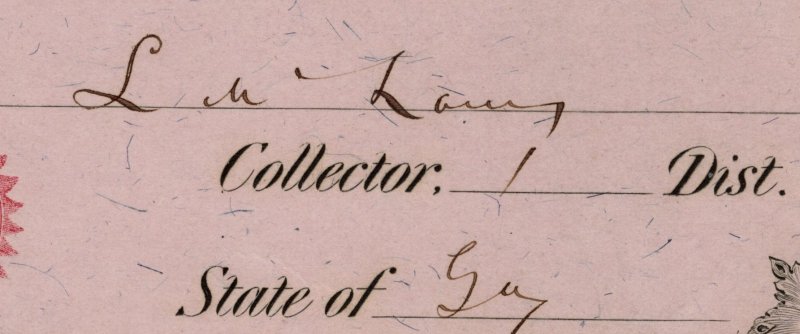 L McLaws
Collector, 1 Dist.
State of Ga